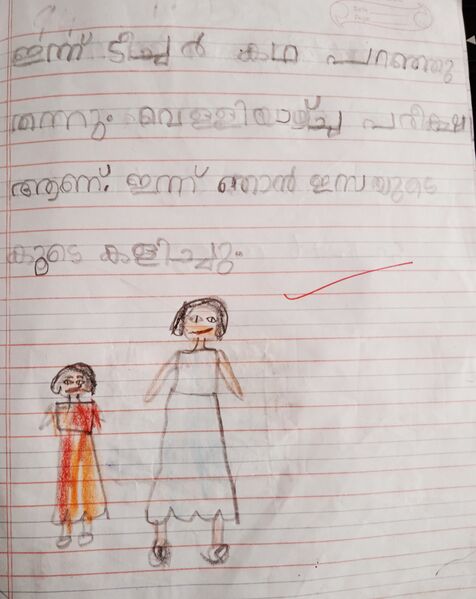 ഇന്ന് ടീച്ചർ കഥ പറഞ്ഞു
തന്നും. വെള്ളിയാഴ്ച്ച പരീക്ഷ
ആണ്. ഇന്ന് ഞാൻ ഇസയുടെ
കൂടെ കളിച്ചും.